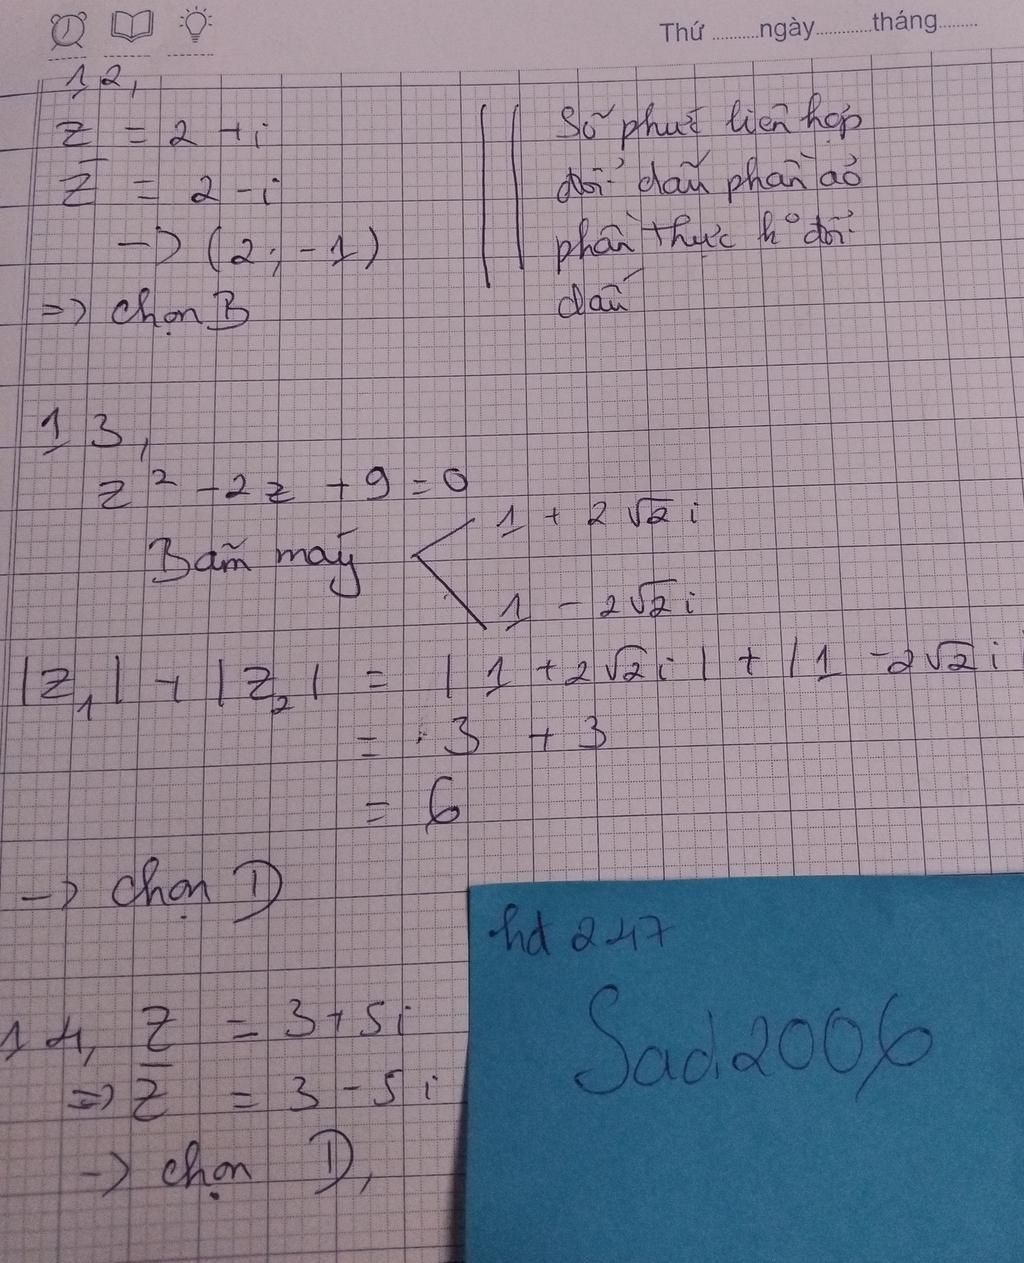 Thứ ..........ngày............tháng.........
12,
z = 2 + i
z̅ = 2 - i
-> (2; -1)
=> chọn B
Số phức liên hợp
đổi dấu phần ảo
phần thực k° đổi
dấu
13,
z² - 2z + 9 = 0
Bấm máy
1 + 2√2 i
1 - 2√2 i
|z₁| + |z₂| = | 1 + 2√2 i | + | 1 - 2√2 i |
= 3 + 3
= 6
-> chọn D
14, z = 3 + 5i
=> z̅ = 3 - 5i
-> chọn D,
hd 247
Sad2006